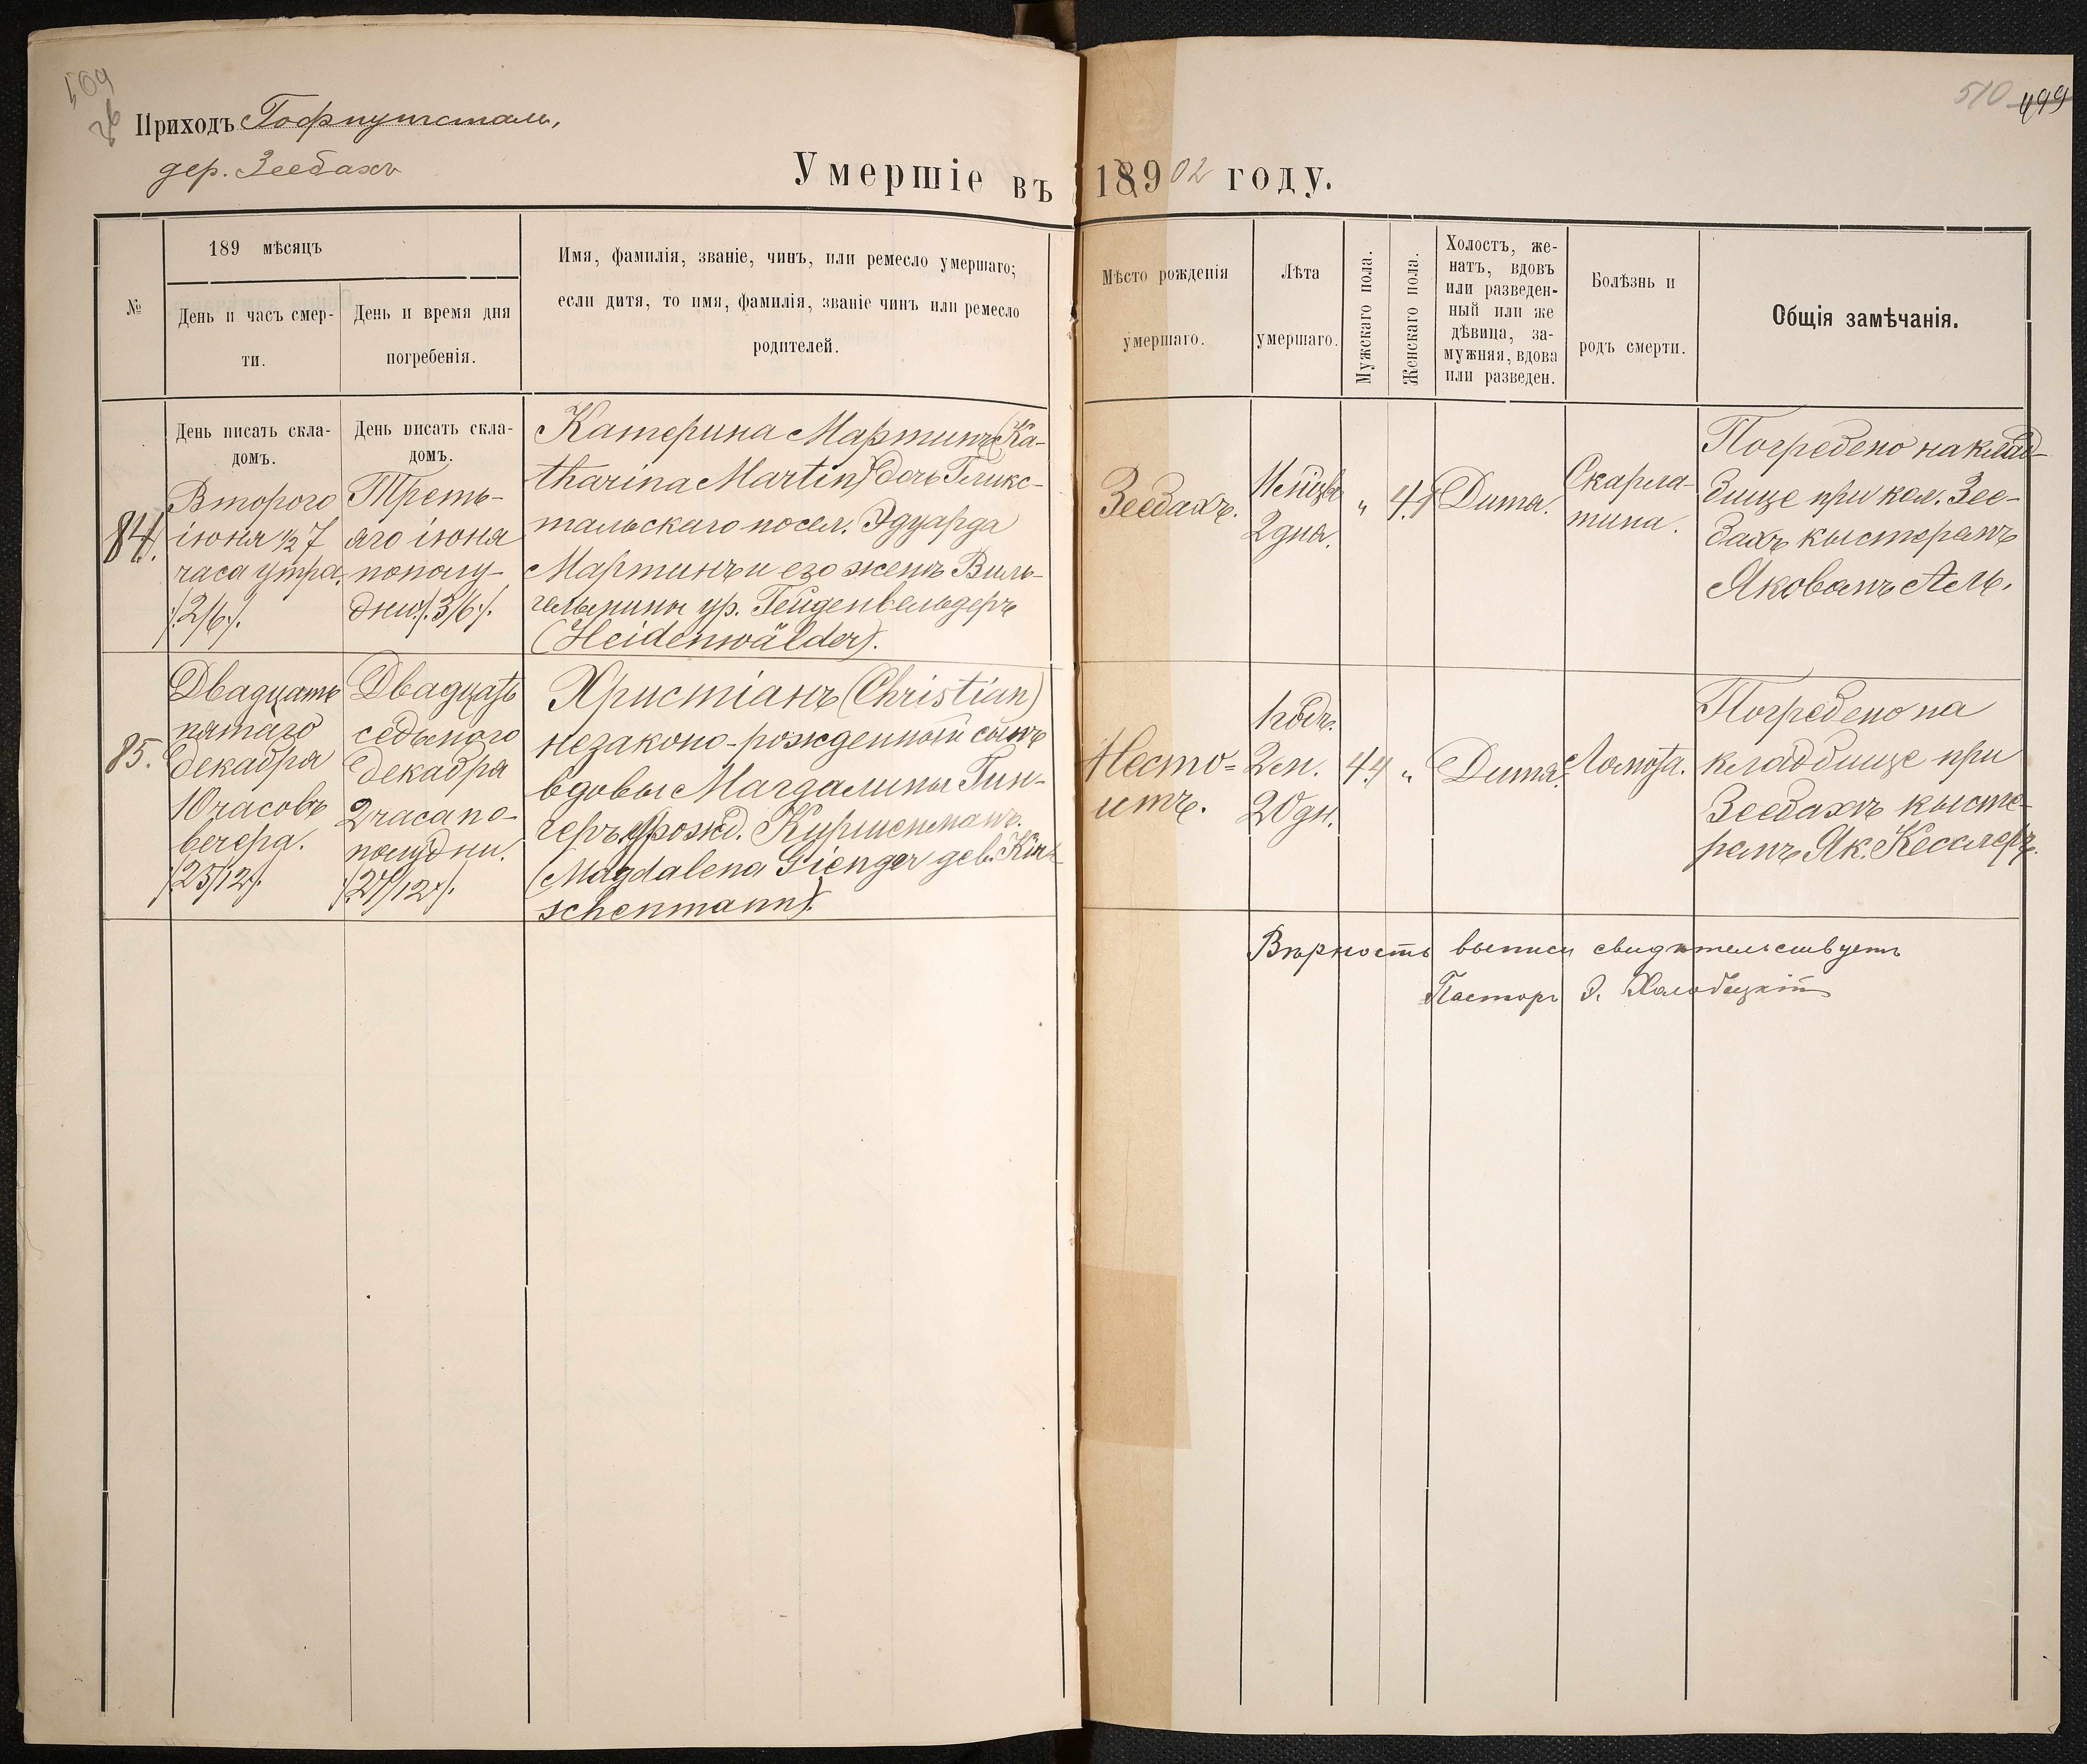 509
26
510 499
Приходъ Гофнунгсталь,
дер. Зеебахъ
Умершіе въ 18902 году.
№
189 мѣсяцъ
День и часъ смер-
ти.
День и время дня
погребенія.
Имя, фамилія, званіе, чинъ, или ремесло умершаго;
если дитя, то имя, фамилія, званіе чинъ или ремесло
родителей.
Мѣсто рожденія
умершаго.
Лѣта
умершаго.
Мужскаго пола.
Женскаго пола.
Холостъ, же-
натъ, вдовъ
или разведен-
ный или же
дѣвица, за-
мужняя, вдова
или разведен.
Болѣзнь и
родъ смерти.
Общія замѣчанія.
84.
День писать скла-
домъ.
Второго
іюня ½ 7
часа утра.
/:2/6:/.
День писать скла-
домъ.
Треть-
яго іюня
пополу-
дни /:3/6:/.
Катерина Мартинъ (Ka-
tharina Martin) дочь Гликс-
тальскаго посел. Эдуарда
Мартинъ и его жены Виль-
гельмины ур. Гейденвельдеръ
(Heidenwälder).
Зеебахъ.
2 дня.
"
41
Дитя.
Скарла-
тина.
Погребено на клад-
бище при кол. Зее-
бахъ кистеромъ
Яковомъ Аль.
85.
Двадцать
пятаго
декабря
10 часовъ
вечера.
/:25/12:/.
Двадцать
седьмого
декабря
2 часа по-
полудни.
/:27/12:/.
Христіанъ (Christian)
незаконо-рожденный сынъ
вдовы Магдалины Гин-
геръ урожд. Киршенманъ.
(Magdalena Gienger geb. Kir-
schenmann).
1 годъ.
2 м.
20 дн.
44
"
Дитя.
Погребено на
кладбище при
Зеебахъ кисте-
ромъ Як. Кесслеръ.
Вѣрность выписи свидѣтельствуетъ
Пасторъ